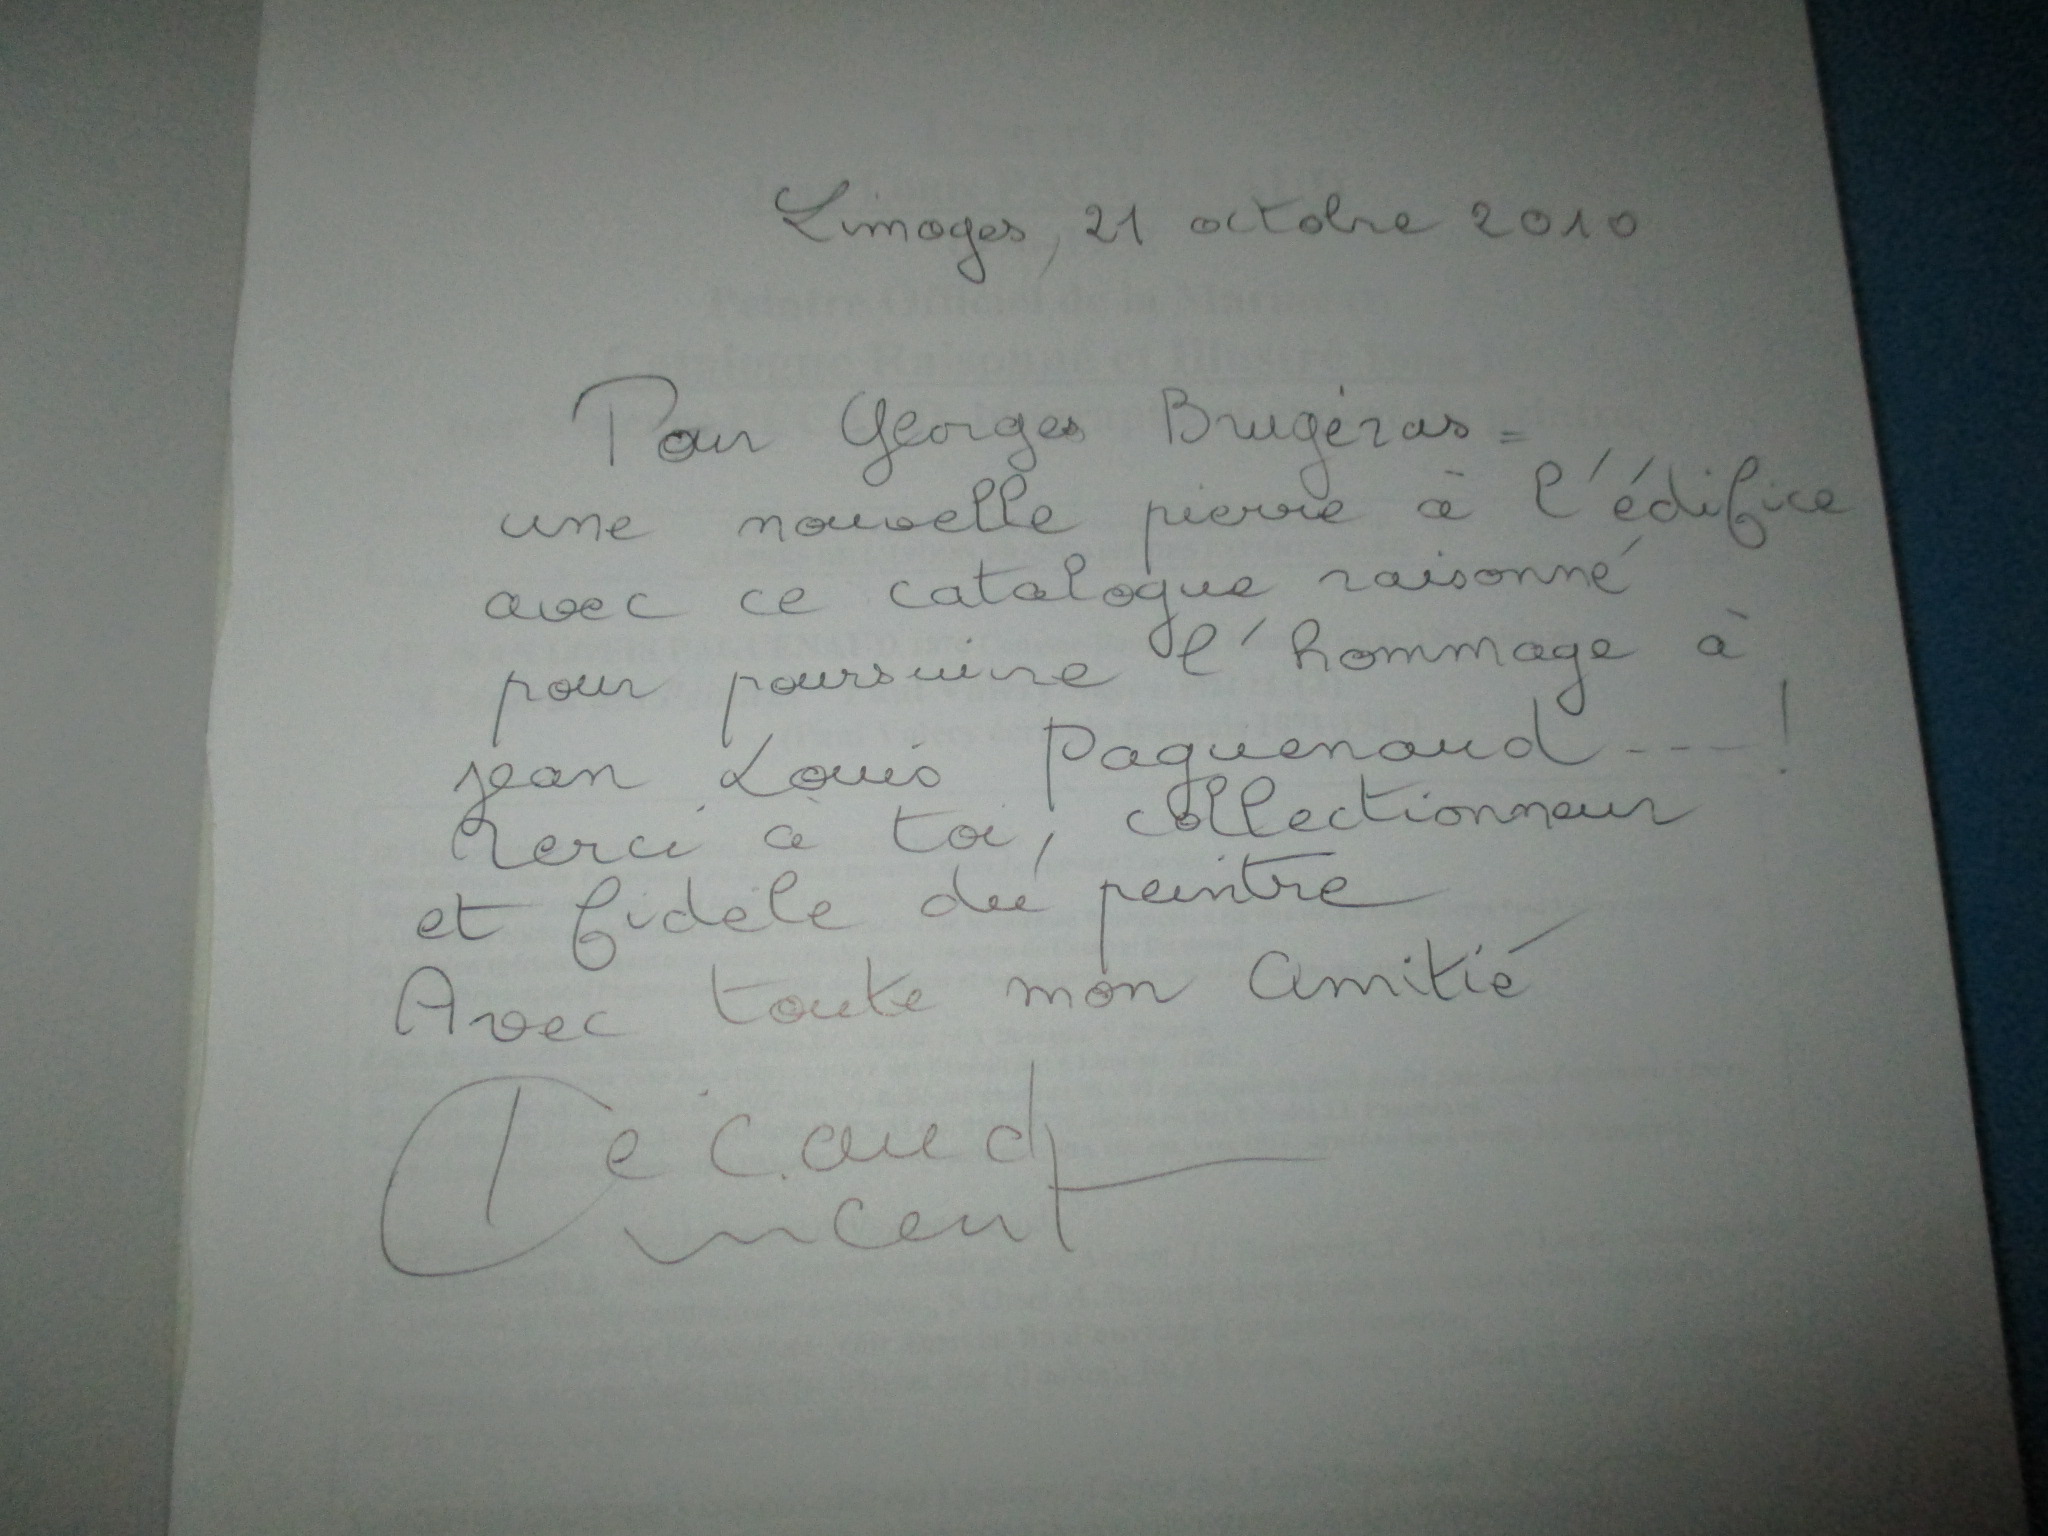 Limoges, 21 octobre 2010
Pour Georges Brugéras =
une nouvelle pierre à l'édifice
avec ce catalogue raisonné
pour poursuivre l'hommage à
Jean Louis Paguenaud ---!
Merci à toi, collectionneur
et fidèle du peintre
Avec toute mon amitié
Vincent